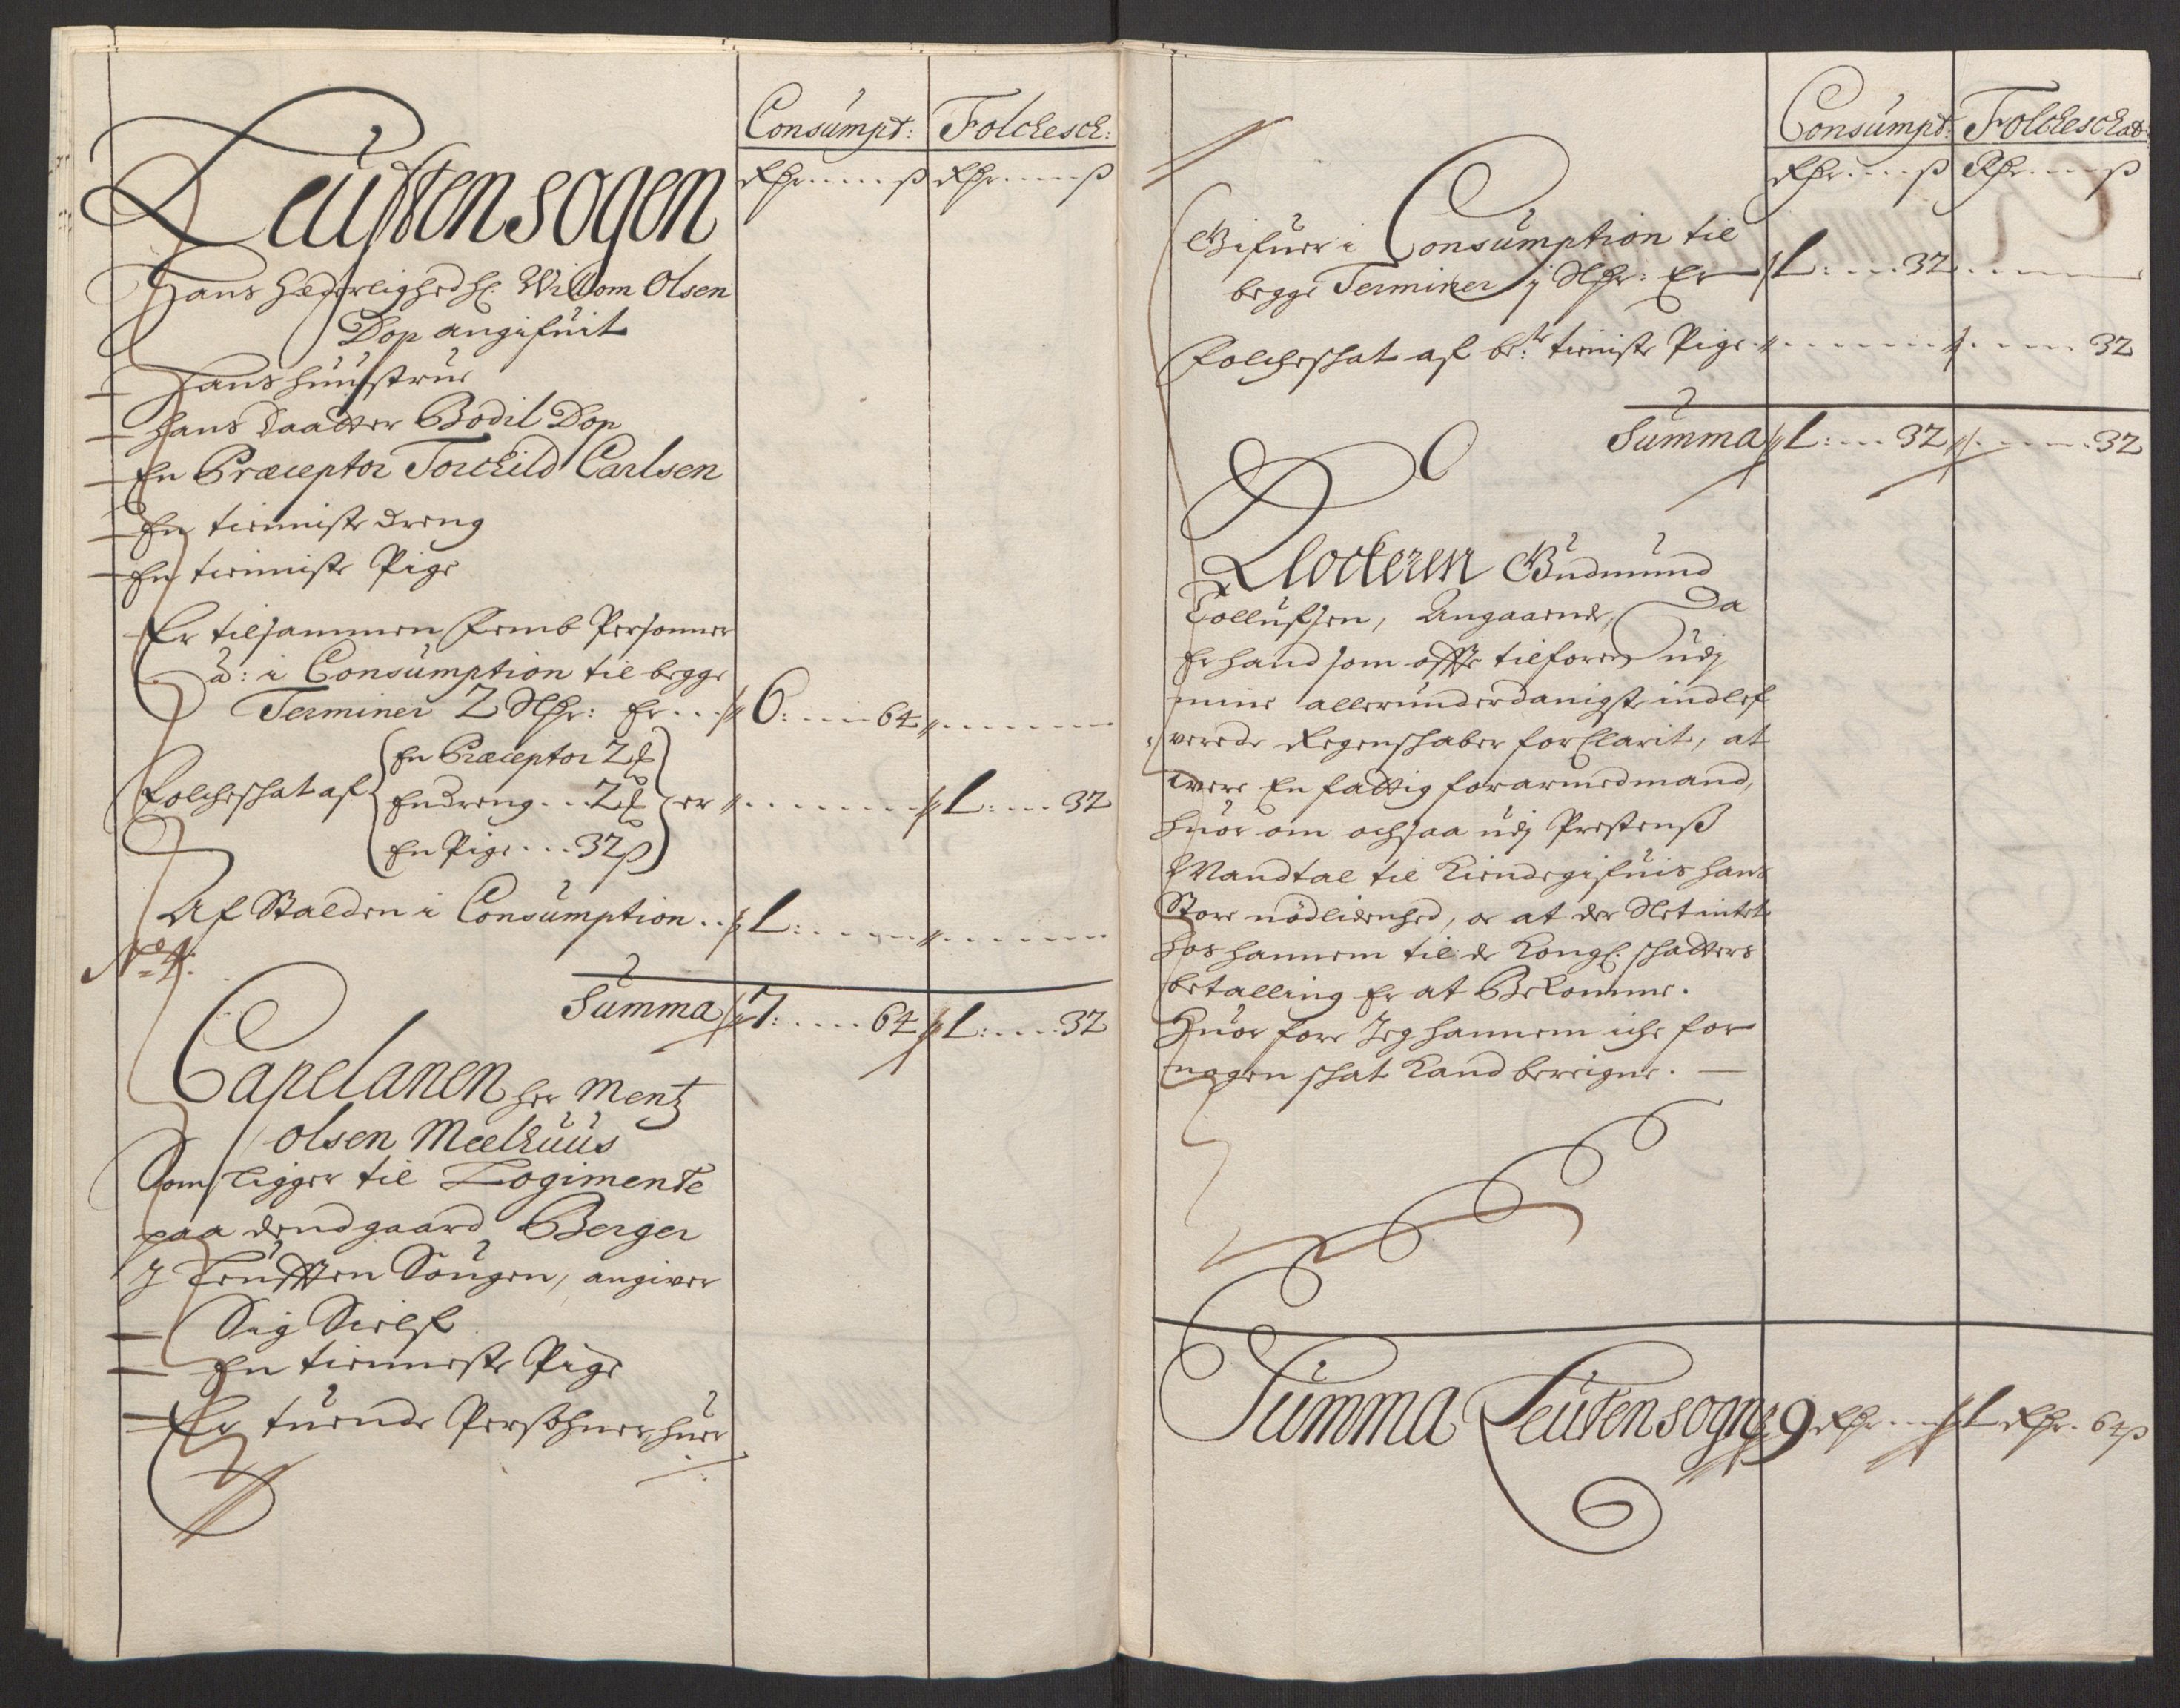 Consumpt: Folckesch:
Rdr ß Rdr ß
Leuften sogen
Hans Hæderlighed H: Willom Olsen
Dop angifuit
Hans huustrue
hans daatter Bodil Dop
En Præceptor Torckild Carlsen
En tienniste dreng
En tienniste Pige
Er tilsammen femb Personner
â: i Consumption til begge
Terminer 2 Sldr: Er 6: 64
Folcheschat af
En Præceptor 2 £
En dreng 2 £
En Pige 32 ß
er 1: 32
Af Stalden i Consumption 1:
No 4:
Summa 7: 64 1: 32
Capelanen her Mentz
Olsen Meelhuus
Som ligger til Logimente
paa dend gaard Berger
J Leufften Sougen, angiver
Sig Sielf
En tienneste Pige
Er tuende Persohner, huer
Consumpt: Folckeschat
Rdr ß Rdr ß
Gifuer i Consumption til
begge Terminer j Sldr: Er 1: 32
Folcheschat af be:te tieniste Pige 32
Summa 1: 32 32
Klockeren Gudmund
Tollufsen, Angaaende, Da
Er hand som offte tilforen udj
mine allerunderdanigste indlef
verede Regenschaber forClarit, at
were En fattig forarmed mand,
huor om ochsaa udj Prestens
Mandtal til kiende gifuis hans
Store nödlidenhed, oc at der Slet intet
hos hannem til de Kongl: schatters
betalling Er at Bekomme.
Huor fore Jeg hannem iche for
nogen schat kand bereigne.
Summa Leuten sogn 9 Rdr 1 Rdr. 64 ß